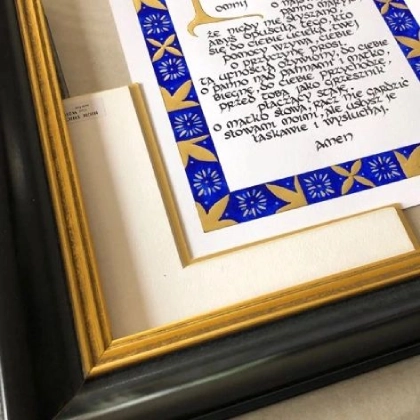 omnij o
że nigdy nie słyszano
abyś opuściła tego, kto
się do Ciebie ucieka, Twej
pomocy wzywa, Ciebie
o przyczynę prosi.
Tą ufnością ożywiony, do Ciebie
o Panno nad pannami i Matko,
biegnę, do Ciebie przychodzę,
przed Tobą jako grzesznik
płaczący staję.
O Matko Słowa, racz nie gardzić
słowami moimi, ale usłysz je
łaskawie i wysłuchaj.
Amen